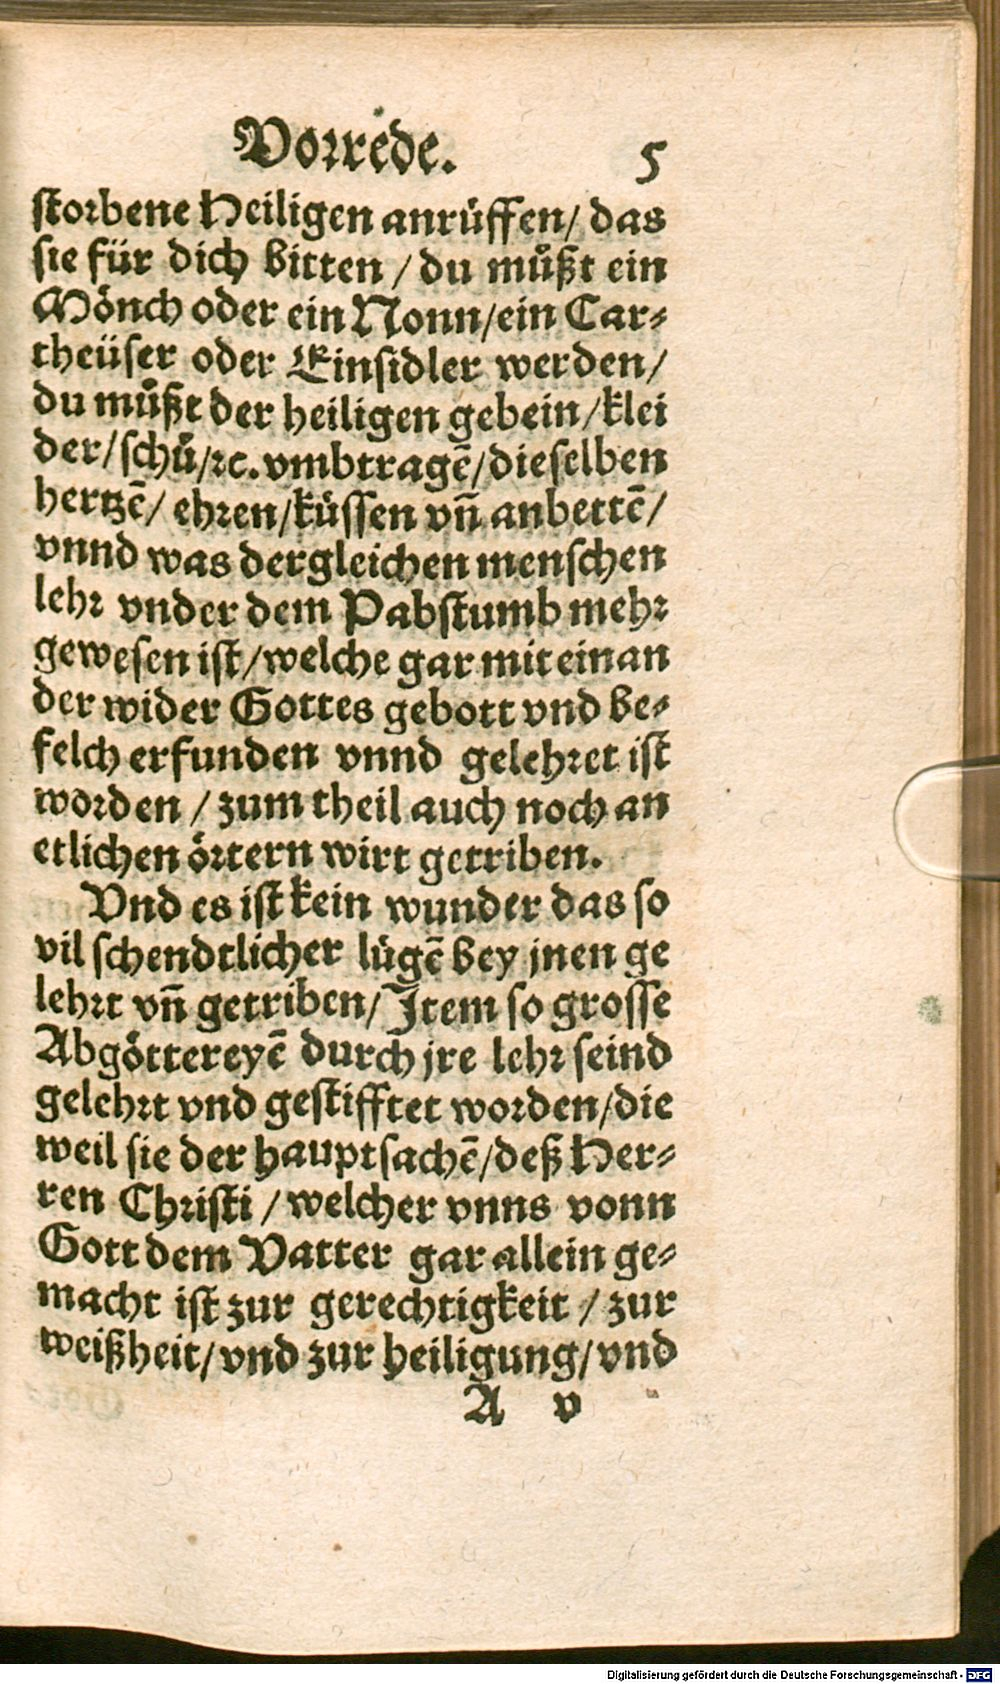 Vorrede. 5
storbene Heiligen anrůffen/ das
sie für dich bitten / du můßt ein
Mönch oder ein Nonn/ein Car⸗
theüser oder Einsidler werden/
du můßt der heiligen gebein/klei
der/schů/ꝛc. vmbtragē/dieselben
hertzē/ ehren/küssen vñ anbettē/
vnnd was dergleichen menschen
lehr vnder dem Pabstumb mehr
gewesen ist/welche gar mit einan
der wider Gottes gebott vnd be⸗
felch erfunden vnnd gelehret ist
worden / zum theil auch noch an
etlichen örtern wirt getriben.
Vnd es ist kein wunder das so
vil schendtlicher lügē bey jnen ge
lehrt vñ getriben/ Item so grosse
Abgöttereyē durch jre lehr seind
gelehrt vnd gestifftet worden/die
weil sie der hauptsachē/deß Her⸗
ren Christi / welcher vnns vonn
Gott dem Vatter gar allein ge⸗
macht ist zur gerechtigkeit / zur
weißheit/vnd zur heiligung/vnd
A v
Digitalisierung gefördert durch die Deutsche Forschungsgemeinschaft - DFG